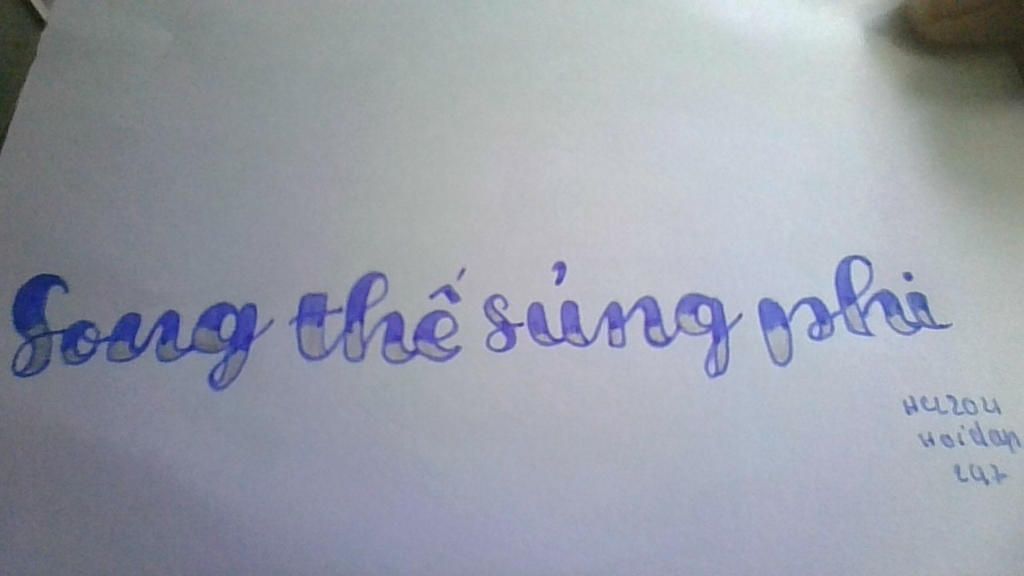 Song thế sủng phi
Hoidap
247